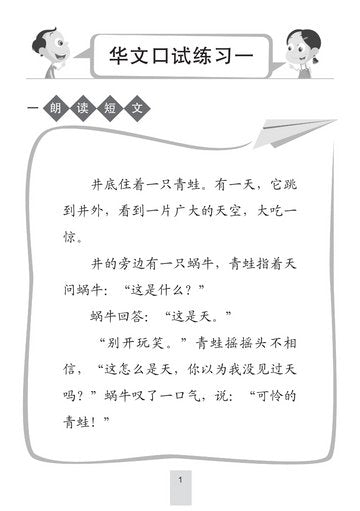 华文口试练习一
一 朗读短文
井底住着一只青蛙。有一天，它跳
到井外，看到一片广大的天空，大吃一
惊。
井的旁边有一只蜗牛，青蛙指着天
问蜗牛：“这是什么？”
蜗牛回答：“这是天。”
“别开玩笑。”青蛙摇摇头不相
信，“这怎么是天，你以为我没见过天
吗？”蜗牛叹了一口气，说：“可怜的
青蛙！”
1